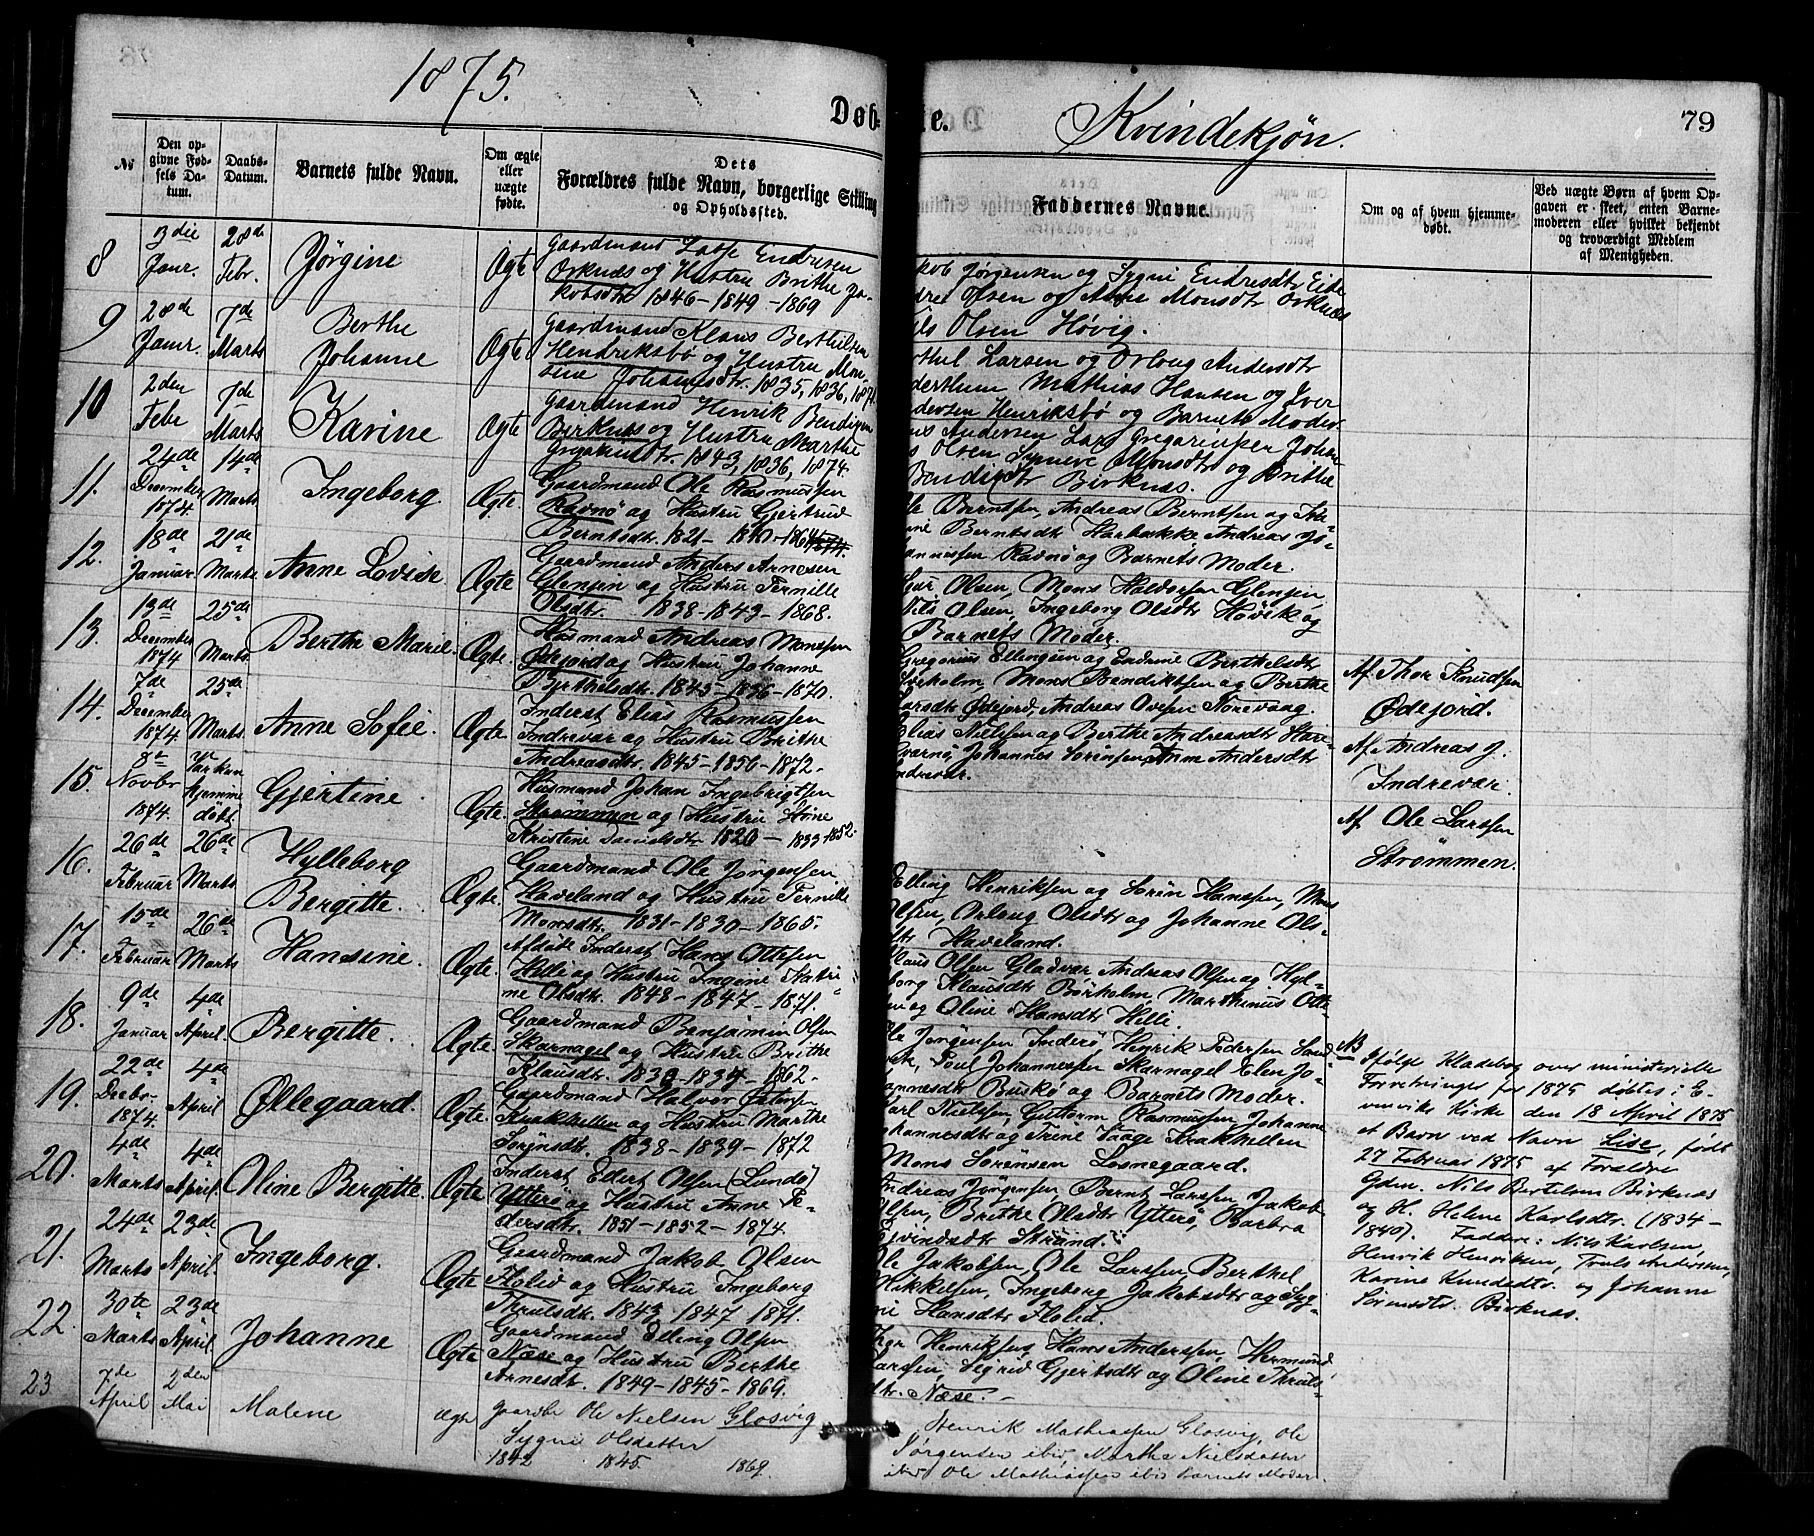 1875.
Døb-
te.
Kvindekjøn.
79
№
Den op-
givne Fød-
sels Da-
tum.
Daabs-
Datum.
Barnets fulde Navn.
Om ægte
eller
uægte
fødte.
Dets
Forældres fulde Navn, borgerlige Stilling
og Opholdssted.
Faddernes Navne.
Om og af hvem hjemme-
døbt.
Ved uægte Børn af hvem Op-
gaven er skeet, enten Barne-
moderen eller hvilket bekjendt
og troværdigt Medlem
af Menigheden.
8
3die
Janr.
28de
Febr.
Jørgine
Ægte
Gaardmand Lasse Endresen
Orknæs og Hustru Brithe Ja-
kobsdtr 1846-1849-1869
Jørgensen og Sygni Endresdtr Eide
Olsen og Anne Monsdtr Orknæs
Olsen Høvig.
9
28de
Janr.
7de
Marts
Berthe
Johanne
Ægte
Gaardmand Klaus Berthelsen
Hendriksbø og Hustru Mon-
sine Johannesdtr. 1835, 1836, 1871.
Larsen og Orloug Andersdtr
Mathias Hansen og Iver
Henriksbø og Barnets Moder
10
2den
Febr
7de
Marts
Karine
Ægte
Gaardmand Henrik Bendixen
Birknæs og Hustru Marthe
1843, 1836, 1874.
Andersen Lars
Olsen Synneve Monsdtr og Brithe
Birknæs.
11.
24de
December
1874
14de
Marts
Ingeborg
Ægte.
Gaardmand Ole Rasmussen
Ravnø og Hustru Gjertrud
Berntsdtr. 1821- 1840-1864
Berntsen, Andreas Berntsen og
Berntsdtr Harbakke Andreas Jo-
Ravnø og Barnets Moder.
12.
18de
Januar
21de
Marts
Anne Lovise.
Ægte
Gaardmand Anders Arnesen
Glenjen og Hustru Pernille
Olsdtr. 1838-1843-1868.
Olsen, Mons Haldorsen Glenjen,
Nils Olsen, Ingeborg Olsdtr Høvik og
Barnets Moder.
13.
13de
December
1874
25de
Marts
Berthe Marie.
Ægte.
Husmand Andreas Monssen
Ødejord og Hustru Johanne
Berthelsdtr. 1845-1836-1870.
Gregorius Ellingsen og Berthelsdtr
Mons Bendiktsen og Berthe
Ødejord, Andreas Ovesen
Af Thor Knudsen
Ødejord.
14.
7de
December
1874.
25de
Marts
Anne Sofie.
Ægte.
Inderst Elias Rasmussen
Indrevær og Hustru Brithe
Andreasdtr. 1845-1850-1872-
Elias Nielsen og Berthe Andreasdtr
Johannes Sørensen, Anne Andersdtr
Af Andreas J.
Indrevær.
15.
Novbr
1874.
Var kun
hjemme
døbt
Gjertine
Ægte.
Husmand Johan Ingebrigtsen
Strømmen og Hustru
Kristine Danielsdtr 1820-1833-1852.
Af Ole Larssen
Strømmen.
16.
26de
Februar
26de
Marts
Hylleborg
Bergitte.
Ægte.
Gaardmand Ole Jørgensen
Haveland og Hustru Pernille
Monsdtr. 1831-1830-1865.
Elling Henriksen og Sørin Hanssen, Mons
Olsen, Orloug Olsdtr og Johanne Ols-
dtr Haveland.
17.
15de
Februar
26de
Marts
Hansine.
Ægte.
Afdøde Inderst Hans Ottesen
Hille og Hustru
ne Olsdtr. 1848-1847-1871.
Klaus Olsen Gladvær Andreas Olsen og Hyl-
borg Klausdtr Børholm, Marthinus Otte-
sen og Oline Hansdtr Hille.
18.
9de
Januar
4de
April.
Bergitte.
Ægte.
Gaardmand Benjamin Olsen
Skarnagel og Hustru Brithe
Klausdtr. 1832-1834-1862-
Ole Jørgensen Inderø, Henrik Pedersen
Poul Johannessen Skarnagel Elen Jo-
hannesdtr Buskø og Barnets Moder.
19.
22de
Decbr
1874.
4de
April
Øllegaard.
Ægte.
Gaardmand Halvor
Krakhellen og Hustru Marthe
1838-1839-1872
Karl Nielsen, Guttorm Rasmussen Johanne
Johannesdtr og Trine Krakhellen
Mons Sørensen Losnegaard.
20.
4de
Marts
4de
April.
Oline Bergitte
Ægte.
Inderst Edert Olsen (Lundø)
Ytterø og Hustru Anne Pe-
dersdtr. 1851-1852-1874.
Andreas Jørgensen, Bernt Larssen, Jakob
Olsen, Brithe Olsdtr Ytterø, Barbra
Eivindsdtr Strand.
21.
24de
Marts
23de
April.
Ingeborg.
Ægte
Gaardmand Jakob Olsen
Floled og Hustru Ingeborg
Thrulsdtr. 1843, 1847, 1871.
Ole Jakobsen, Ole Larssen Berthel
Mikkelsen, Ingeborg Jakobsdtr og Syg-
ni Hansdtr Floled.
22.
30te
Marts
23de
April
Johanne
Ægte
Gaardmand Elling Olsen
Næse og Hustru Berthe
Arnesdtr. 1849-1845-1869.
Thor Henriksen, Hans Anderssen, Hermund
Larssen, Sigrid Gjertsdtr og Oline Thruls-
dtr. Næse.
23
7de
April
2den
Mai
Malene
ægte
Gaardbr Ole Nielsen Glosvig
Sygni Olsdatter
1842 1845. 1869.
Henrik Mathiassen Glosvig, Ole
Jørgensen ibid, Martha Nielsdatter
ibid Ole Mathiassen ibid Barnets Moder.
NB
Ifølge Kladebog over ministerielle
Forretninger for 1875 døbtes i E-
vinviks Kirke den 18 April 1875
et Barn ved Navn Lise, født
27 Februar 1875 af Forældre
Gdm. Nils Bertelsen Birknæs
og H. Helene Karlsdtr. (1834-
1840). Faddre: Nils Karlsen,
Henrik Henriksen, Truls Andersen,
Karine Knudsdtr. og Johanne
Sørensdtr. Birknæs.